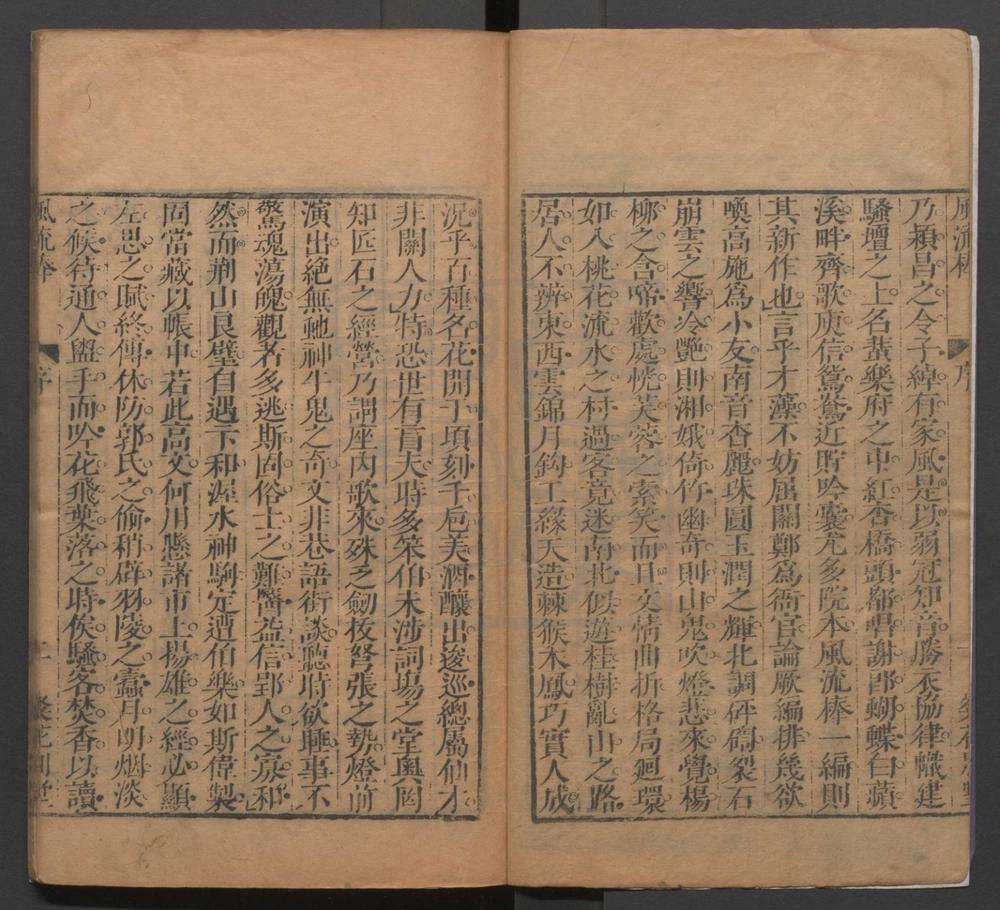 風流棒 序
乃穎昌之令子綽有家風是以弱冠知音勝衣協律幟建
騷壇之上名蜚樂府之中紅杏橋頭都唱謝郎蝴蝶白蘋
溪畔齊歌庾信鴛鴦近貯吟囊尤多院本風流棒一編則
其新作也言乎才藻不妨屈關鄭為衙官論厥編排幾欲
喚高施為小友南音杏麗珠圓玉潤之輝北調砰礚裂石
崩雲之響冷艷則湘娥倚竹幽奇則山鬼吹燈悲來覺楊
柳之含啼歡處恍芙蓉之索笑而且文情曲折格局廻環
如入桃花流水之村過客竟迷南北似遊桂樹亂山之路
居人不辨東西雲錦月鈎工緣天造棘猴木鳳巧實人成
況乎百種名花開于頃刻千卮美酒釀出逡巡總屬仙才
非關人力特恐世有盲夫時多笨伯未涉詞場之堂奧罔
知匠石之經營乃謂座内歌來殊乏劒拔弩張之勢燈前
演出絶無虵神牛鬼之奇文非巷語街談聽時欲睡事不
驚魂蕩魄觀者多逃斯固俗士之難醫益信郢人之寡和
然而荆山良璧自遇卞和渥水神駒定遭伯樂如斯偉製
問當藏以帳中若此高文何用懸諸市上揚雄之經必顯
左思之賦終傳休防郭氏之偷稍辟羽陵之蠹月明烟淡
之候待通人盥手而吟花飛葉落之時俟騷客焚香以讀
風流棒 序 二